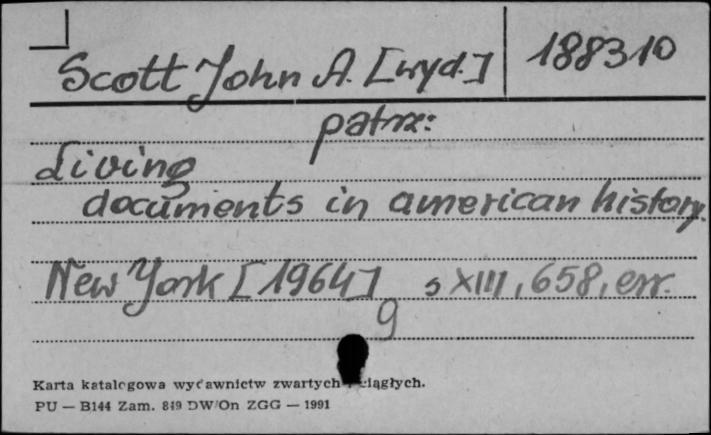 Scott John A. [wyd.] 188310
patrz:
Living
documents in american history.
New York [1964] s XIII, 658, err.
9
Karta katalogowa wydawnictw zwartych i ciągłych.
PU — B144 Zam. 849 DW/On ZGG — 1991